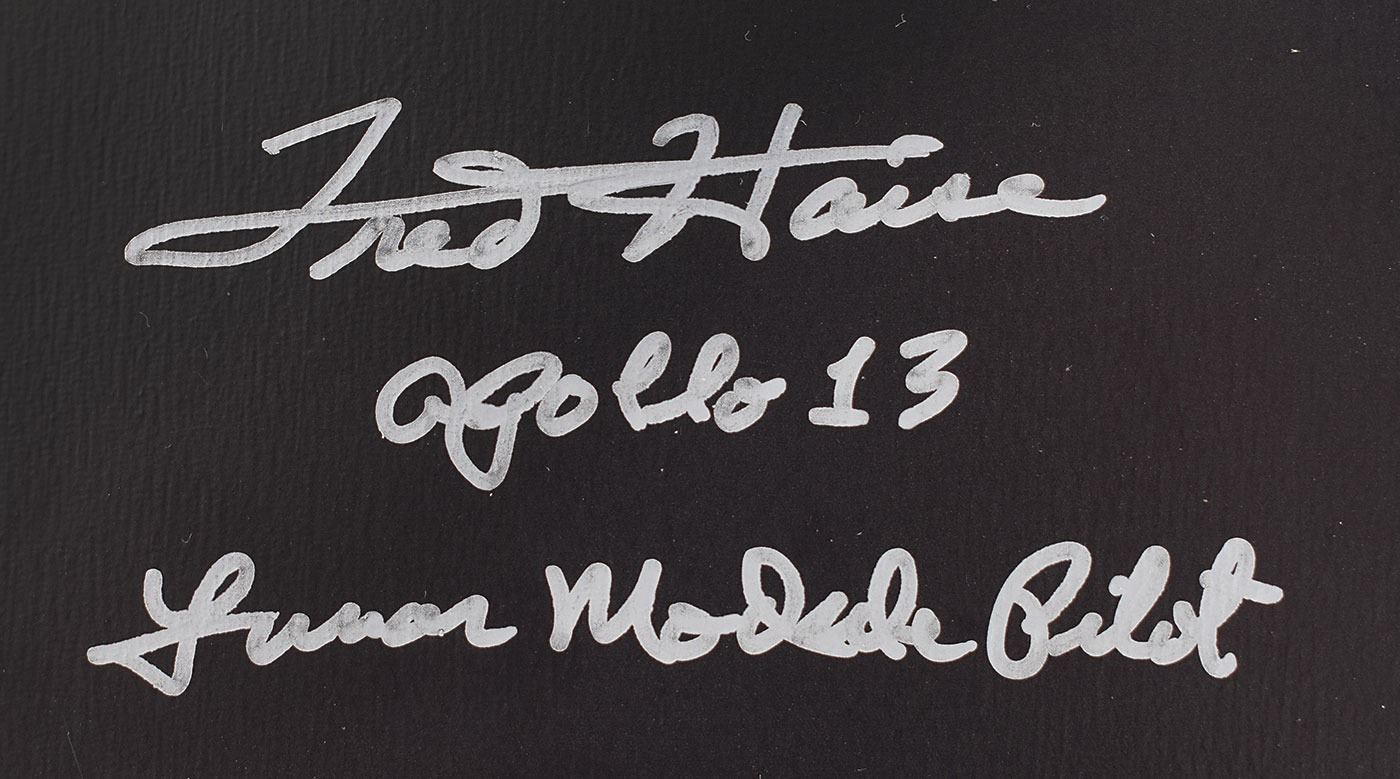 Fred Haise
Apollo 13
Lunar Module Pilot